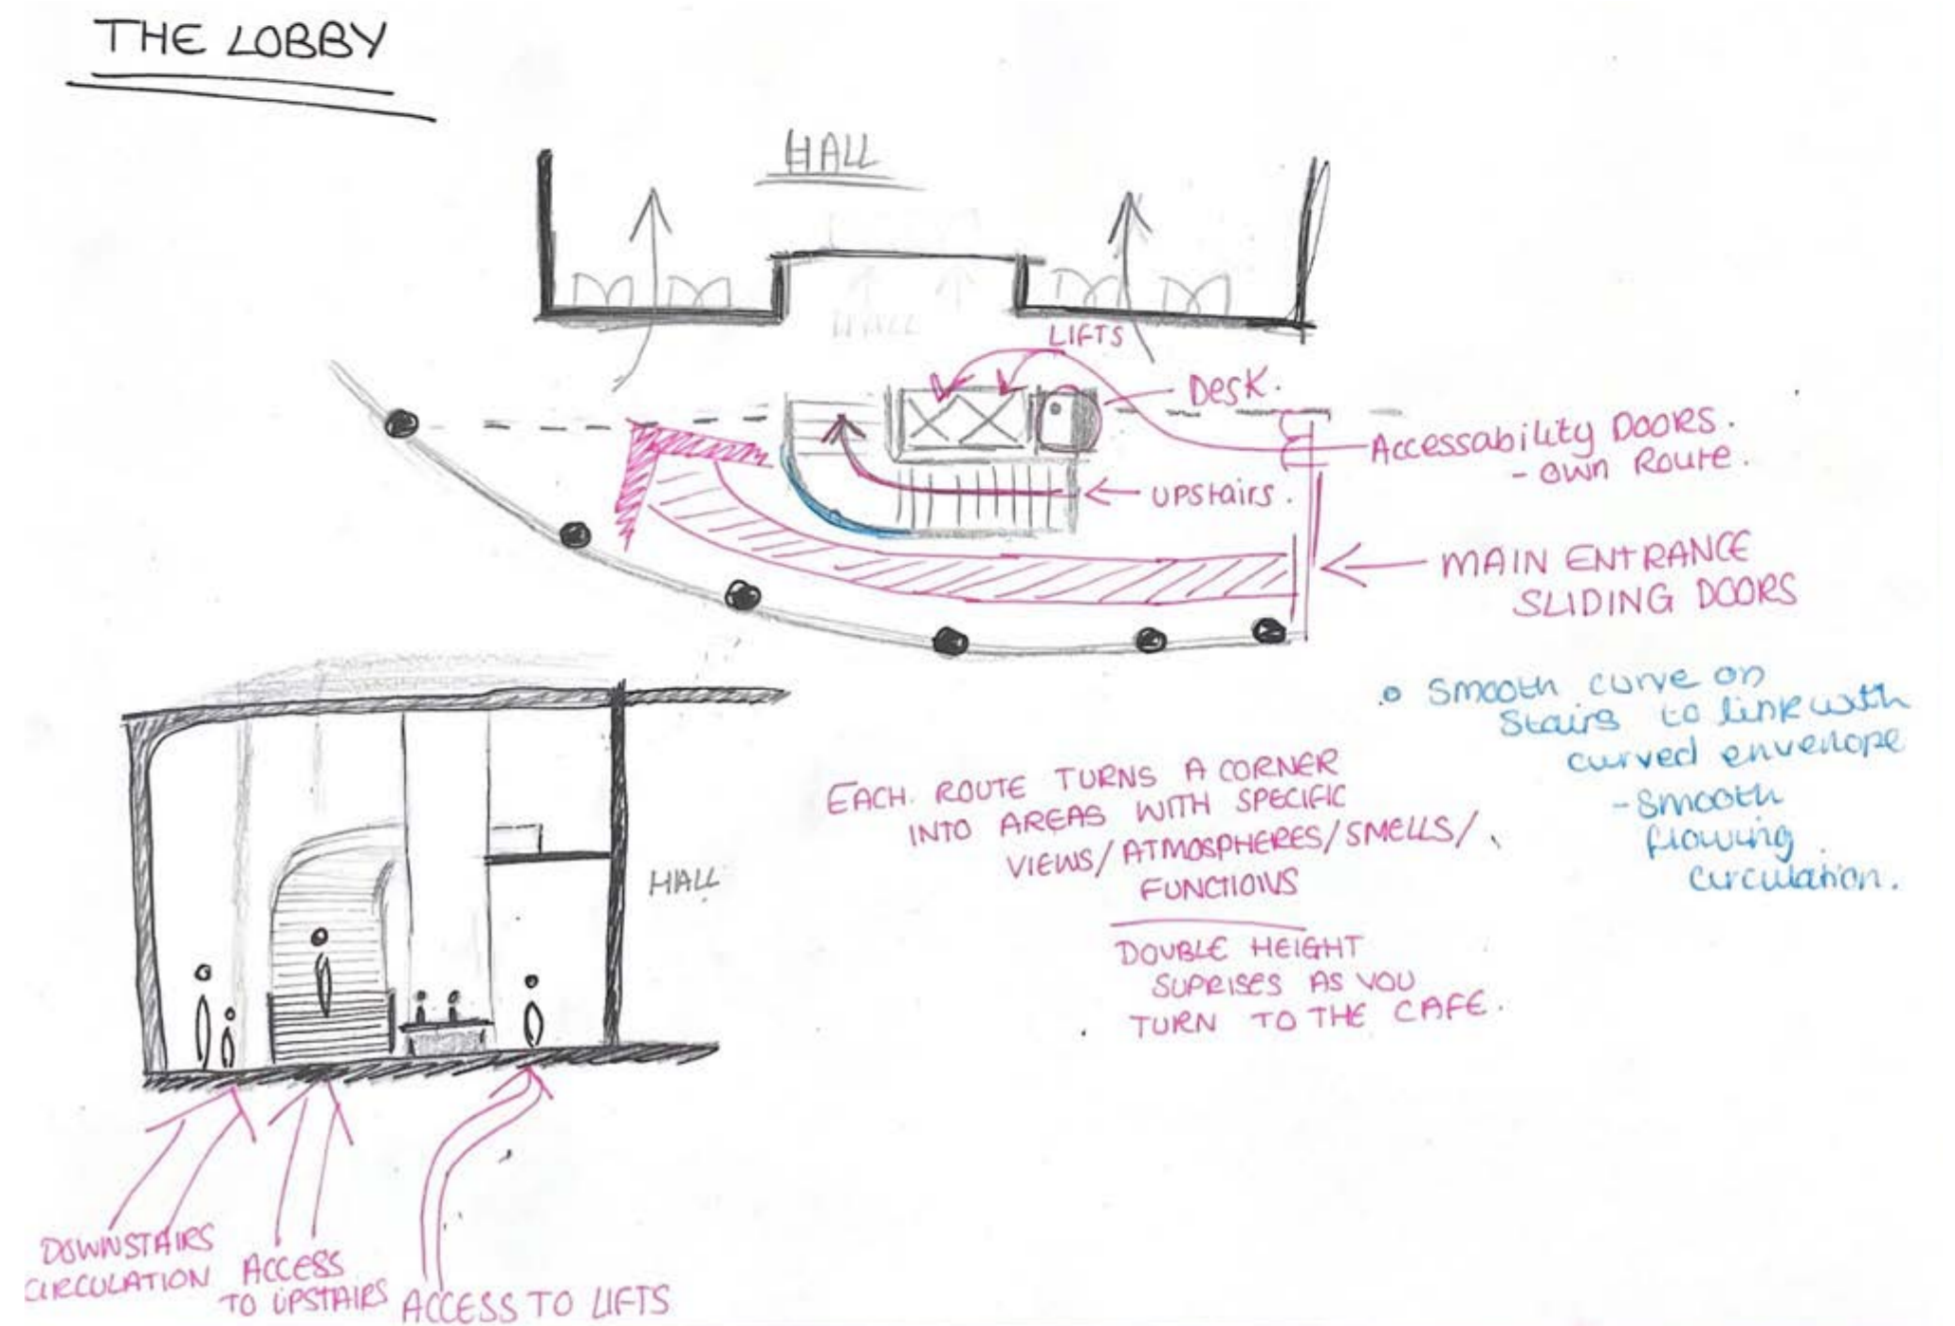 THE LOBBY
HALL
LIFTS
DESK.
ACCESSABILITY DOORS.
- OWN ROUTE.
UPSTAIRS.
MAIN ENTRANCE
SLIDING DOORS
Smooth curve on
Stairs to link with
curved envelope
- Smooth
flowing
circulation.
EACH ROUTE TURNS A CORNER
INTO AREAS WITH SPECIFIC
VIEWS/ATMOSPHERES/SMELLS/
FUNCTIONS
DOUBLE HEIGHT
SUPRISES AS YOU
TURN TO THE CAFE.
HALL
DOWNSTAIRS
CIRCULATION
ACCESS
TO UPSTAIRS
ACCESS TO LIFTS